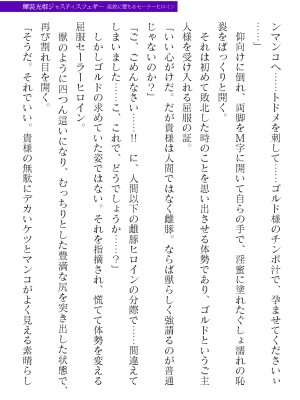 ジャスティスフェザー
ンマンコへ……トドメを刺して……ゴールド様のチンポ汁で、孕ませてくださいぃ
仰向けに倒れ、両脚をM字に開いて自らの手で、淫蜜に塗れたぐしょ濡れの恥
裂をぱっくりと開く。
それは初めて敗北した時のことを思い出させる体勢であり、ゴールドというご主
人様を受け入れる屈服の証。
「いい心がけだ。だが貴様は人間ではなく雌豚。ならば獣らしく強請るのが普通
じゃないのか?」
「ご、ごめんなさい……!! に、人間以下の雌豚ヒロインの分際で……間違えて
しまいました……こ、これで、どうでしょうか……?」
しかしゴールドの求めていた姿ではない。それを指摘され、慌てて体勢を変える
屈服セーラーヒロイン。
獣のように四つん這いになり、むっちりとした豊満な尻を突き出した状態で、
再び割れ目を開く。
「そうだ、それでいい。貴様の無駄にデカいケツとマンコがよく見える素晴らし